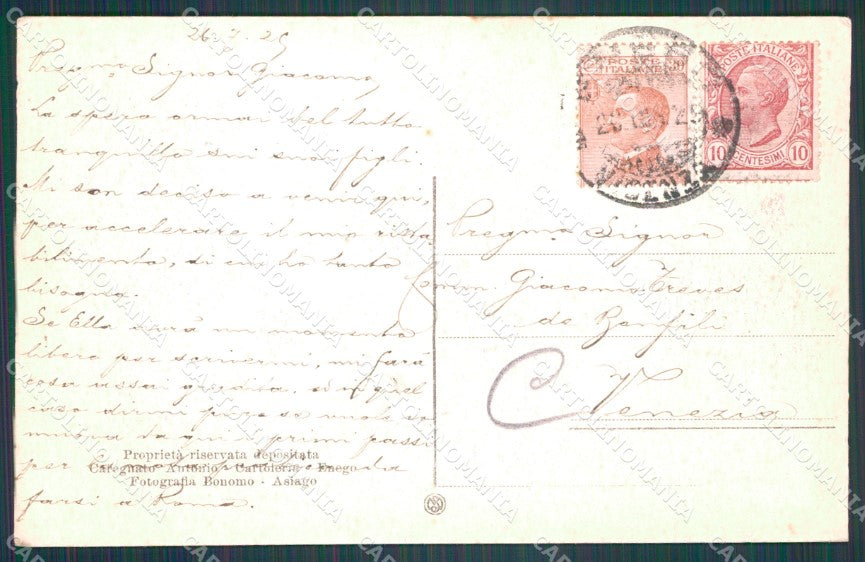 26.7.25
Pregmo Signor Giacomo,
La spero ormai del tutto
tranquilla sui suoi figli.
Mi son deciso a venir qui,
per accelerare il mio rista-
bilimento, di cui ho tanto
bisogno.
Se Ella avrà un momento
libero per scrivermi, mi farà
cosa assai gradita, e in quel
caso dirmi pure se vuole
muova da qui i primi passi
per
farsi a Roma.
Proprietà riservata depositata
Caregnato Antonio - Cartoleria - Enego
Fotografia Bonomo - Asiago
POSTE ITALIANE
20
POSTE ITALIANE
10 CENTESIMI 10
Pregmo Signor
Comm. Giacomo Treves
de Bonfili
Venezia
CARTOLINOMANIA